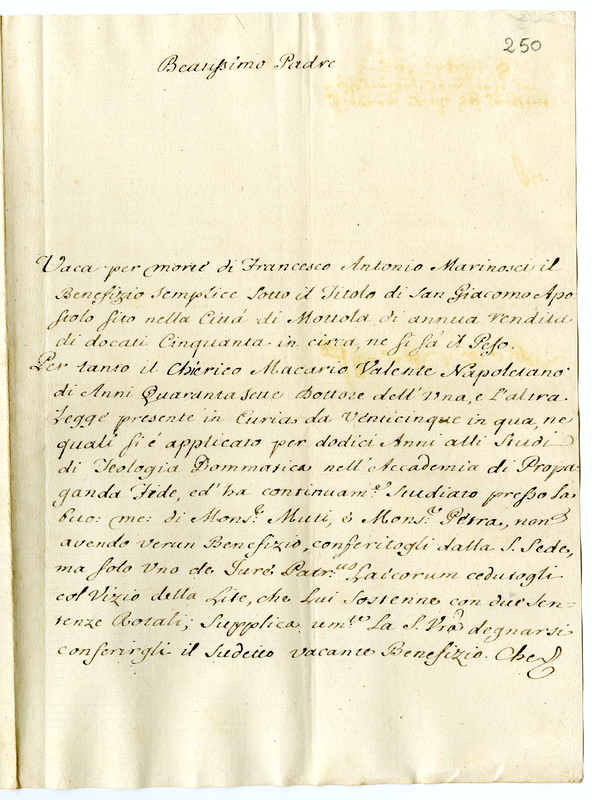 250
Beatissimo Padre
Vaca per morte di Francesco Antonio Marinosci il
Benefizio semplice sotto il Titolo di San Giacomo Apo=
stolo sito nella Città di Mottola di annua rendita
di docati Cinquanta in circa, ne si sà il Peso.
Per tanto il Chierico Macario Valente Napoletano
di Anni Quarantasette Dottore dell'Una, e l'altra
Legge presente in Curia da Venticinque in qua, ne
quali si è applicato per dodici Anni alli Studi
di Teologia Dommatica nell'Accademia di Propa=
ganda Fide, ed' ha continuam.te studiato presso la
buo: me: di Mons.r Muti, e Mons.r Petra, non
avendo verun Benefizio, conferitogli dalla S. Sede,
ma solo uno de Jure Patr.us Laicorum cedutogli
col Vizio della Lite, che Lui sostenne con due Sen=
tenze Rotali; Supplica um.te La S. Vra degnarsi
conferirgli il sudetto vacante Benefizio. Che